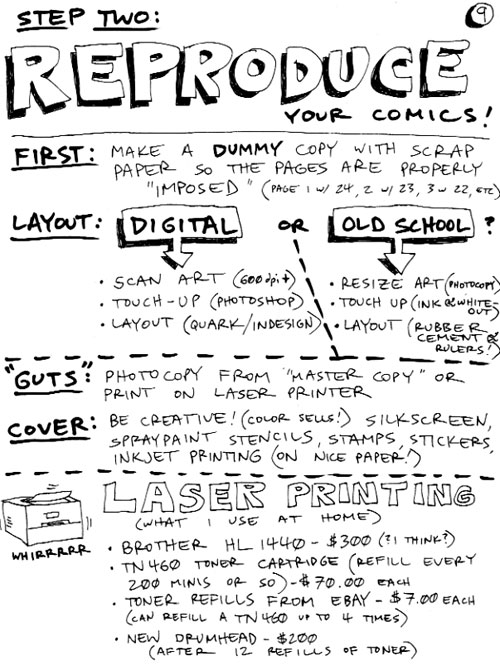 STEP TWO:
9
REPRODUCE
YOUR COMICS!
FIRST: MAKE A DUMMY COPY WITH SCRAP
PAPER SO THE PAGES ARE PROPERLY
"IMPOSED" (PAGE 1 W/ 24, 2 W/ 23, 3 W 22, ETC)
LAYOUT: DIGITAL OR OLD SCHOOL ?
• SCAN ART (600 dpi+)
• TOUCH-UP (PHOTOSHOP)
• LAYOUT (QUARK/INDESIGN)
• RESIZE ART (PHOTOCOPY)
• TOUCH UP (INK & WHITE-
OUT)
• LAYOUT (RUBBER
CEMENT &
RULERS!)
"GUTS": PHOTOCOPY FROM "MASTER COPY" OR
PRINT ON LASER PRINTER
COVER: BE CREATIVE! (COLOR SELLS!) SILKSCREEN,
SPRAYPAINT STENCILS, STAMPS, STICKERS,
INKJET PRINTING (ON NICE PAPER!)
LASER PRINTING
(WHAT I USE AT HOME)
WHIRRRRR
• BROTHER HL 1440 - $300 (?I THINK?)
• TN460 TONER CARTRIDGE (REFILL EVERY
200 MINIS OR SO) - $70.00 EACH
• TONER REFILLS FROM EBAY - $7.00 EACH
(CAN REFILL A TN460 UP TO 4 TIMES)
• NEW DRUMHEAD - $200
(AFTER 12 REFILLS OF TONER)